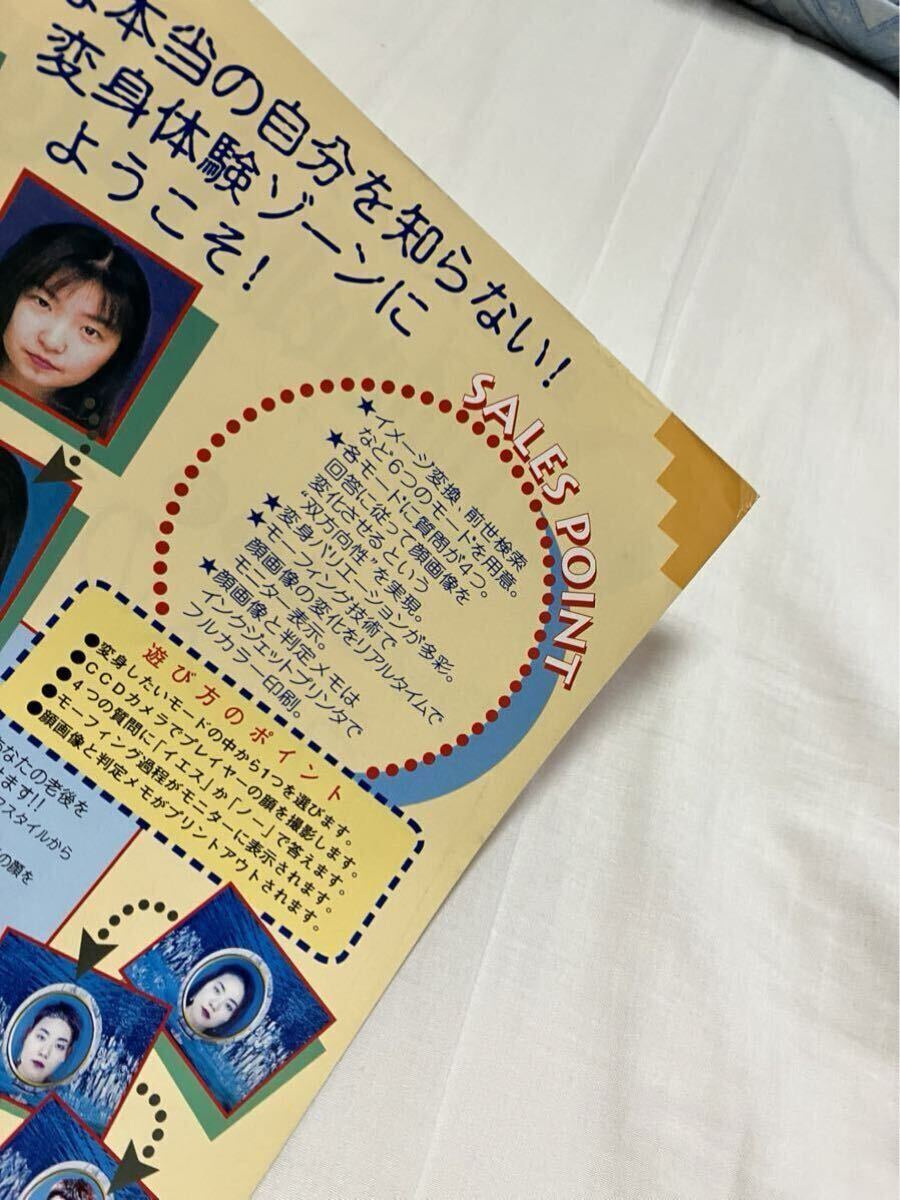 本当の自分を知らない!
変身体験ゾーンに
ようこそ!
SALES POINT
★イメージ変換、前世検索
など6つのモードを用意。
★各モードに質問が4つ。
回答に従って顔画像を
変化させるという
“双方向性”を実現。
★変身バリエーションが多彩。
★モーフィング技術で
顔画像の変化をリアルタイムで
モニター表示。
★顔画像と判定メモは
インクジェットプリンタで
フルカラー印刷。
遊び方のポイント
●変身したいモードの中から1つを選びます。
●CCDカメラでプレイヤーの顔を撮影します。
●4つの質問に「イエス」か「ノー」で答えます。
●モーフィング過程がモニターに表示されます。
●顔画像と判定メモがプリントアウトされます。
あなたの老後を
ます!!
アスタイルから
の顔を